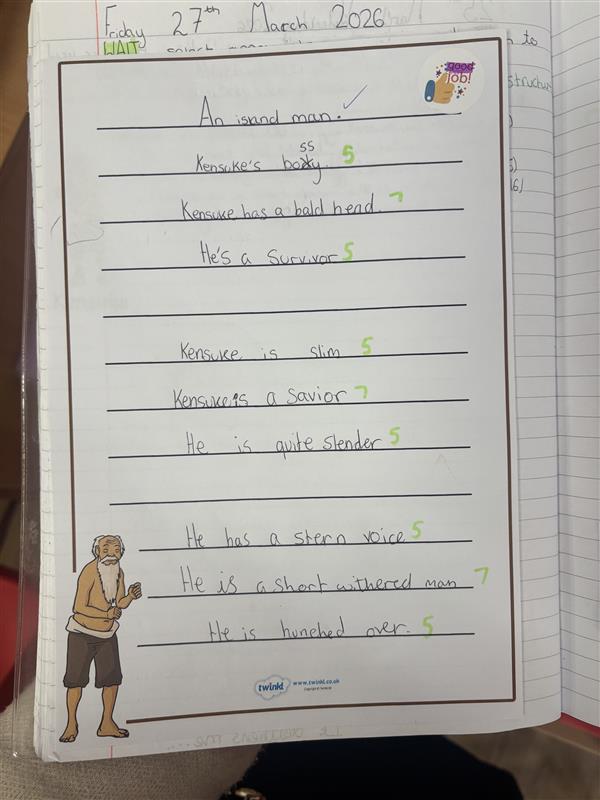 Friday 27th March 2026
WAIT
to
good
job!
structure
An island man.
ss
Kensuke's bossy. 5
Kensuke has a bald head. 7
He's a Survivor 5
Kensuke is slim 5
Kensuke is a savior 7
He is quite slender 5
He has a stern voice 5
He is a short withered man 7
He is hunched over. 5
twinkl
www.twinkl.co.uk